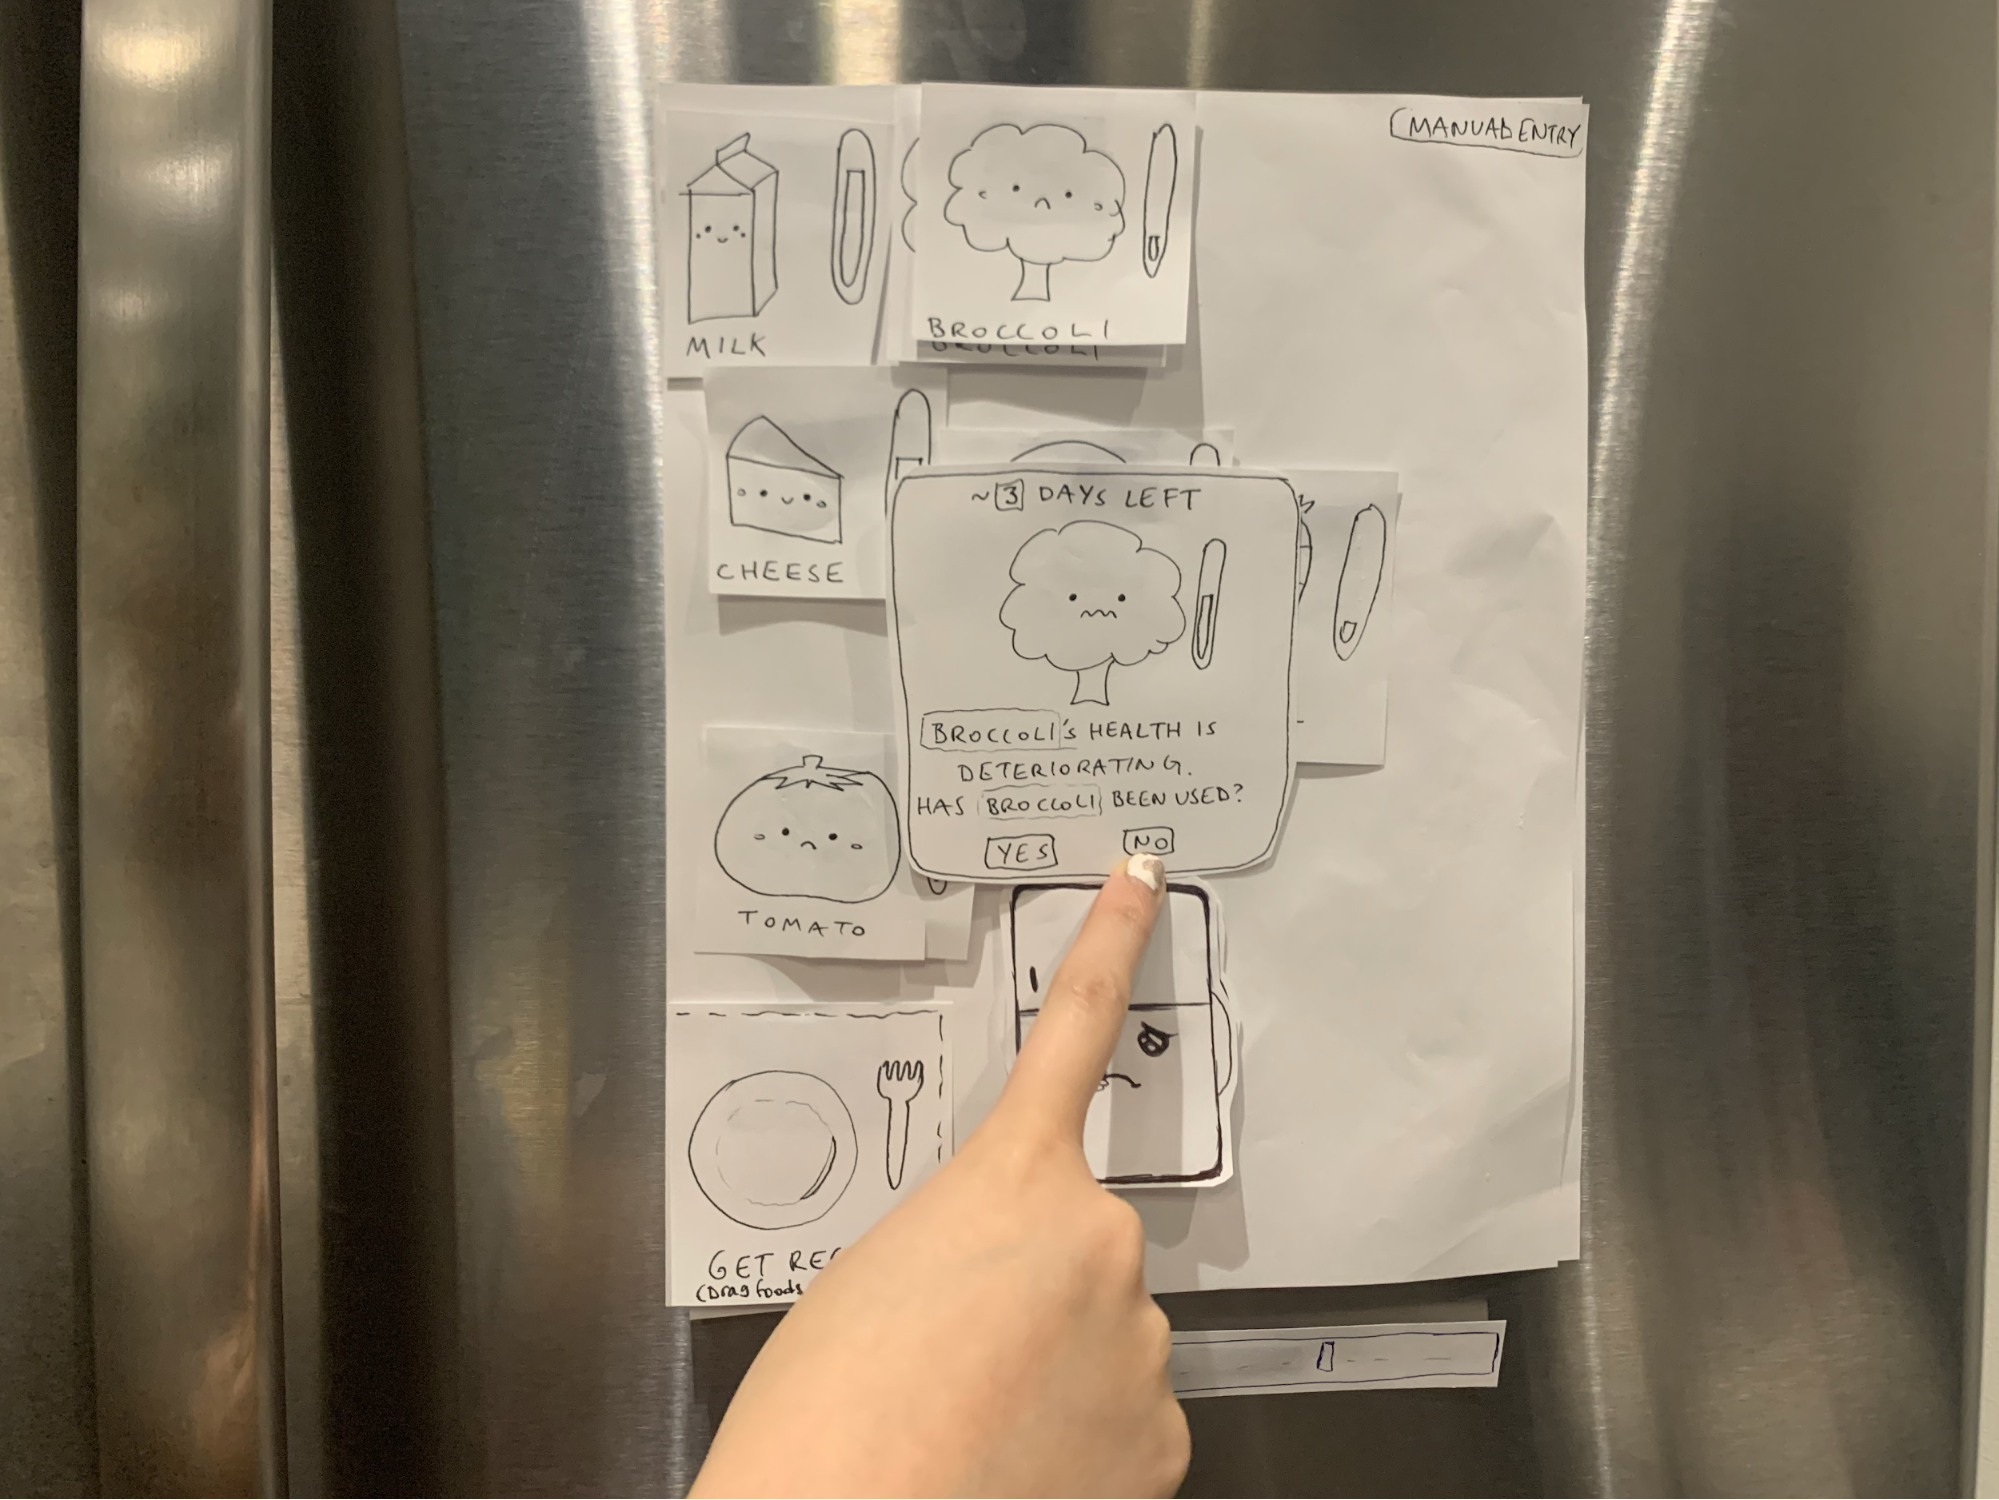 MANUAL ENTRY
MILK
BROCCOLI
BROCCOLI
CHEESE
~3 DAYS LEFT
BROCCOLI's HEALTH IS
DETERIORATING.
HAS BROCCOLI BEEN USED?
YES NO
TOMATO
GET
(Drag foods